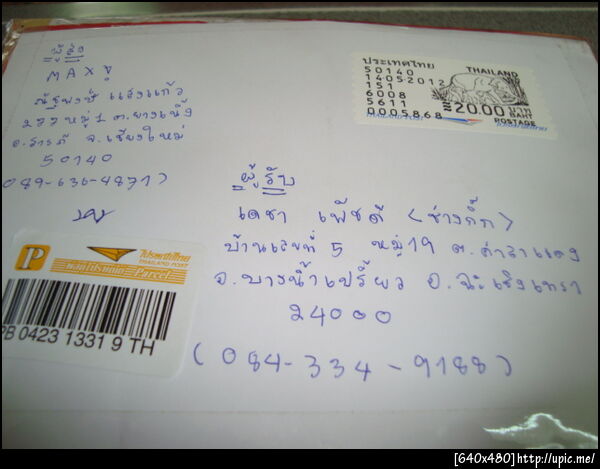 ผู้ส่ง
MAX
ณัฐพงษ์ แสงแก้ว
277 หมู่ 1 ต.ยางเนิ้ง
อ.สารภี จ.เชียงใหม่
50140
(089-636-4871)
ประเทศไทย
50140
14052012
151
6008
5611
0005868
THAILAND
20.00 บาท
BAHT
POSTAGE
ผู้รับ
เดชา เพ็ชดี (ช่างกิ๊ก)
บ้านเลขที่ 5 หมู่ 19 ต.ศาลาแดง
อ.บางน้ำเปรี้ยว จ.ฉะเชิงเทรา
24000
(084-334-9188)
P
ไปรษณีย์ไทย
THAILAND POST
พัสดุไปรษณีย์ Parcel
PB 0423 1331 9 TH
[640x480]http://upic.me/